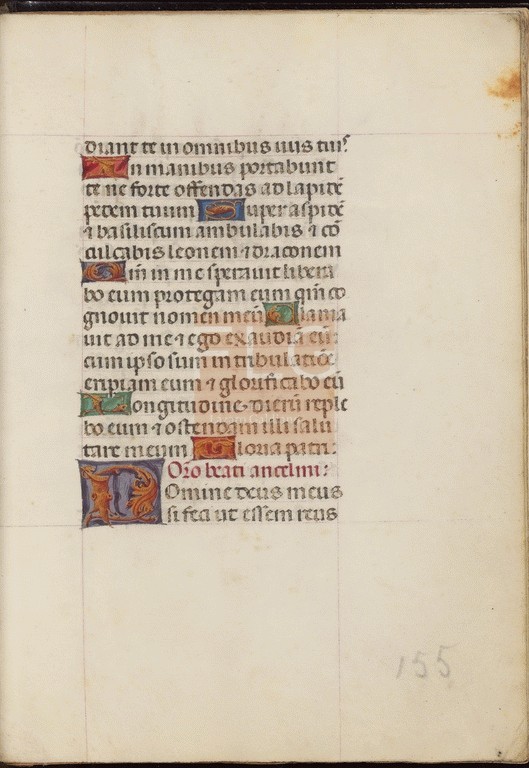 diant te in omnibus viis tuis
In manibus portabunt
te ne forte offendas ad lapidē
pedem tuum Super aspidē
⁊ basiliscum ambulabis ⁊ cō
culcabis leonem ⁊ draconem
Qm̄ in me speravit libera
bo eum protegam eum qm̄ co
gnovit nomen meū Clama
vit ad me ⁊ ego exaudiā eū:
cum ipso sum in tribulatiōe
eripiam eum ⁊ glorificabo eū
Longitudine dierū reple
bo eum ⁊ ostendam illi salu
tare meum Gloria patri:
Oro beati ancelmi:
Domine deus meus
si feci ut essem reus
155